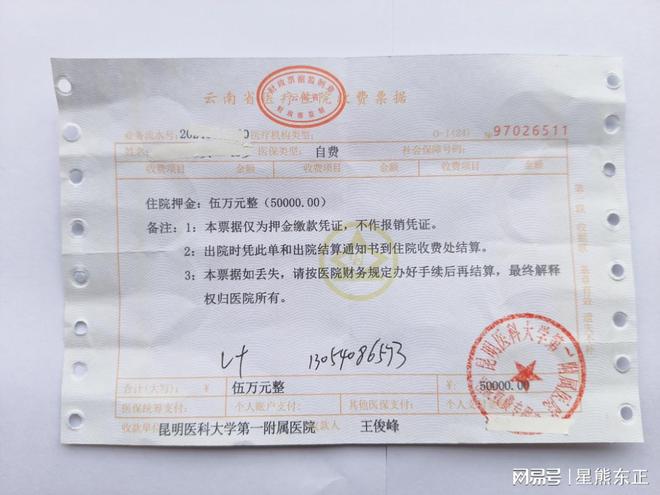 财政票据监制章
云南省
财政部监制
云南省医疗住院收费票据
业务流水号: 202 0 医疗机构类型: 0-1(24) № 97026511
姓名: 医保类型: 自费 社会保障号码:
收费项目 金额 收费项目 金额 收费项目 金额
住院押金:伍万元整(50000.00)
备注:1:本票据仅为押金缴款凭证,不作报销凭证。
2:出院时凭此单和出院结算通知书到住院收费处结算。
3:本票据如丢失,请按医院财务规定办好手续后再结算,最终解释
权归医院所有。
13054086573
合计(大写): ¥ 伍万元整 ¥: 50000.00
医保统筹支付: 个人账户支付: 其他医保支付: 个人支付金额:
收款单位 昆明医科大学第一附属医院 收款人 王俊峰
昆明医科大学第一附属医院
收费专用
网易号 | 星熊东正